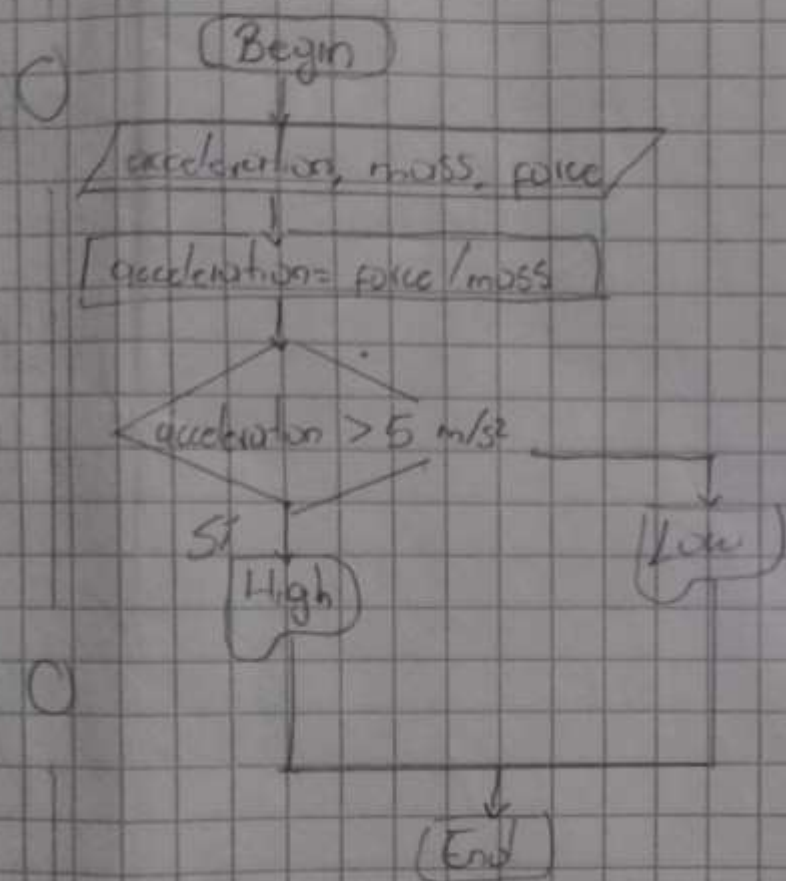 Begin
acceleration, mass, force
acceleration = force / mass
acceleration > 5 m/s²
Si
Low
High
End